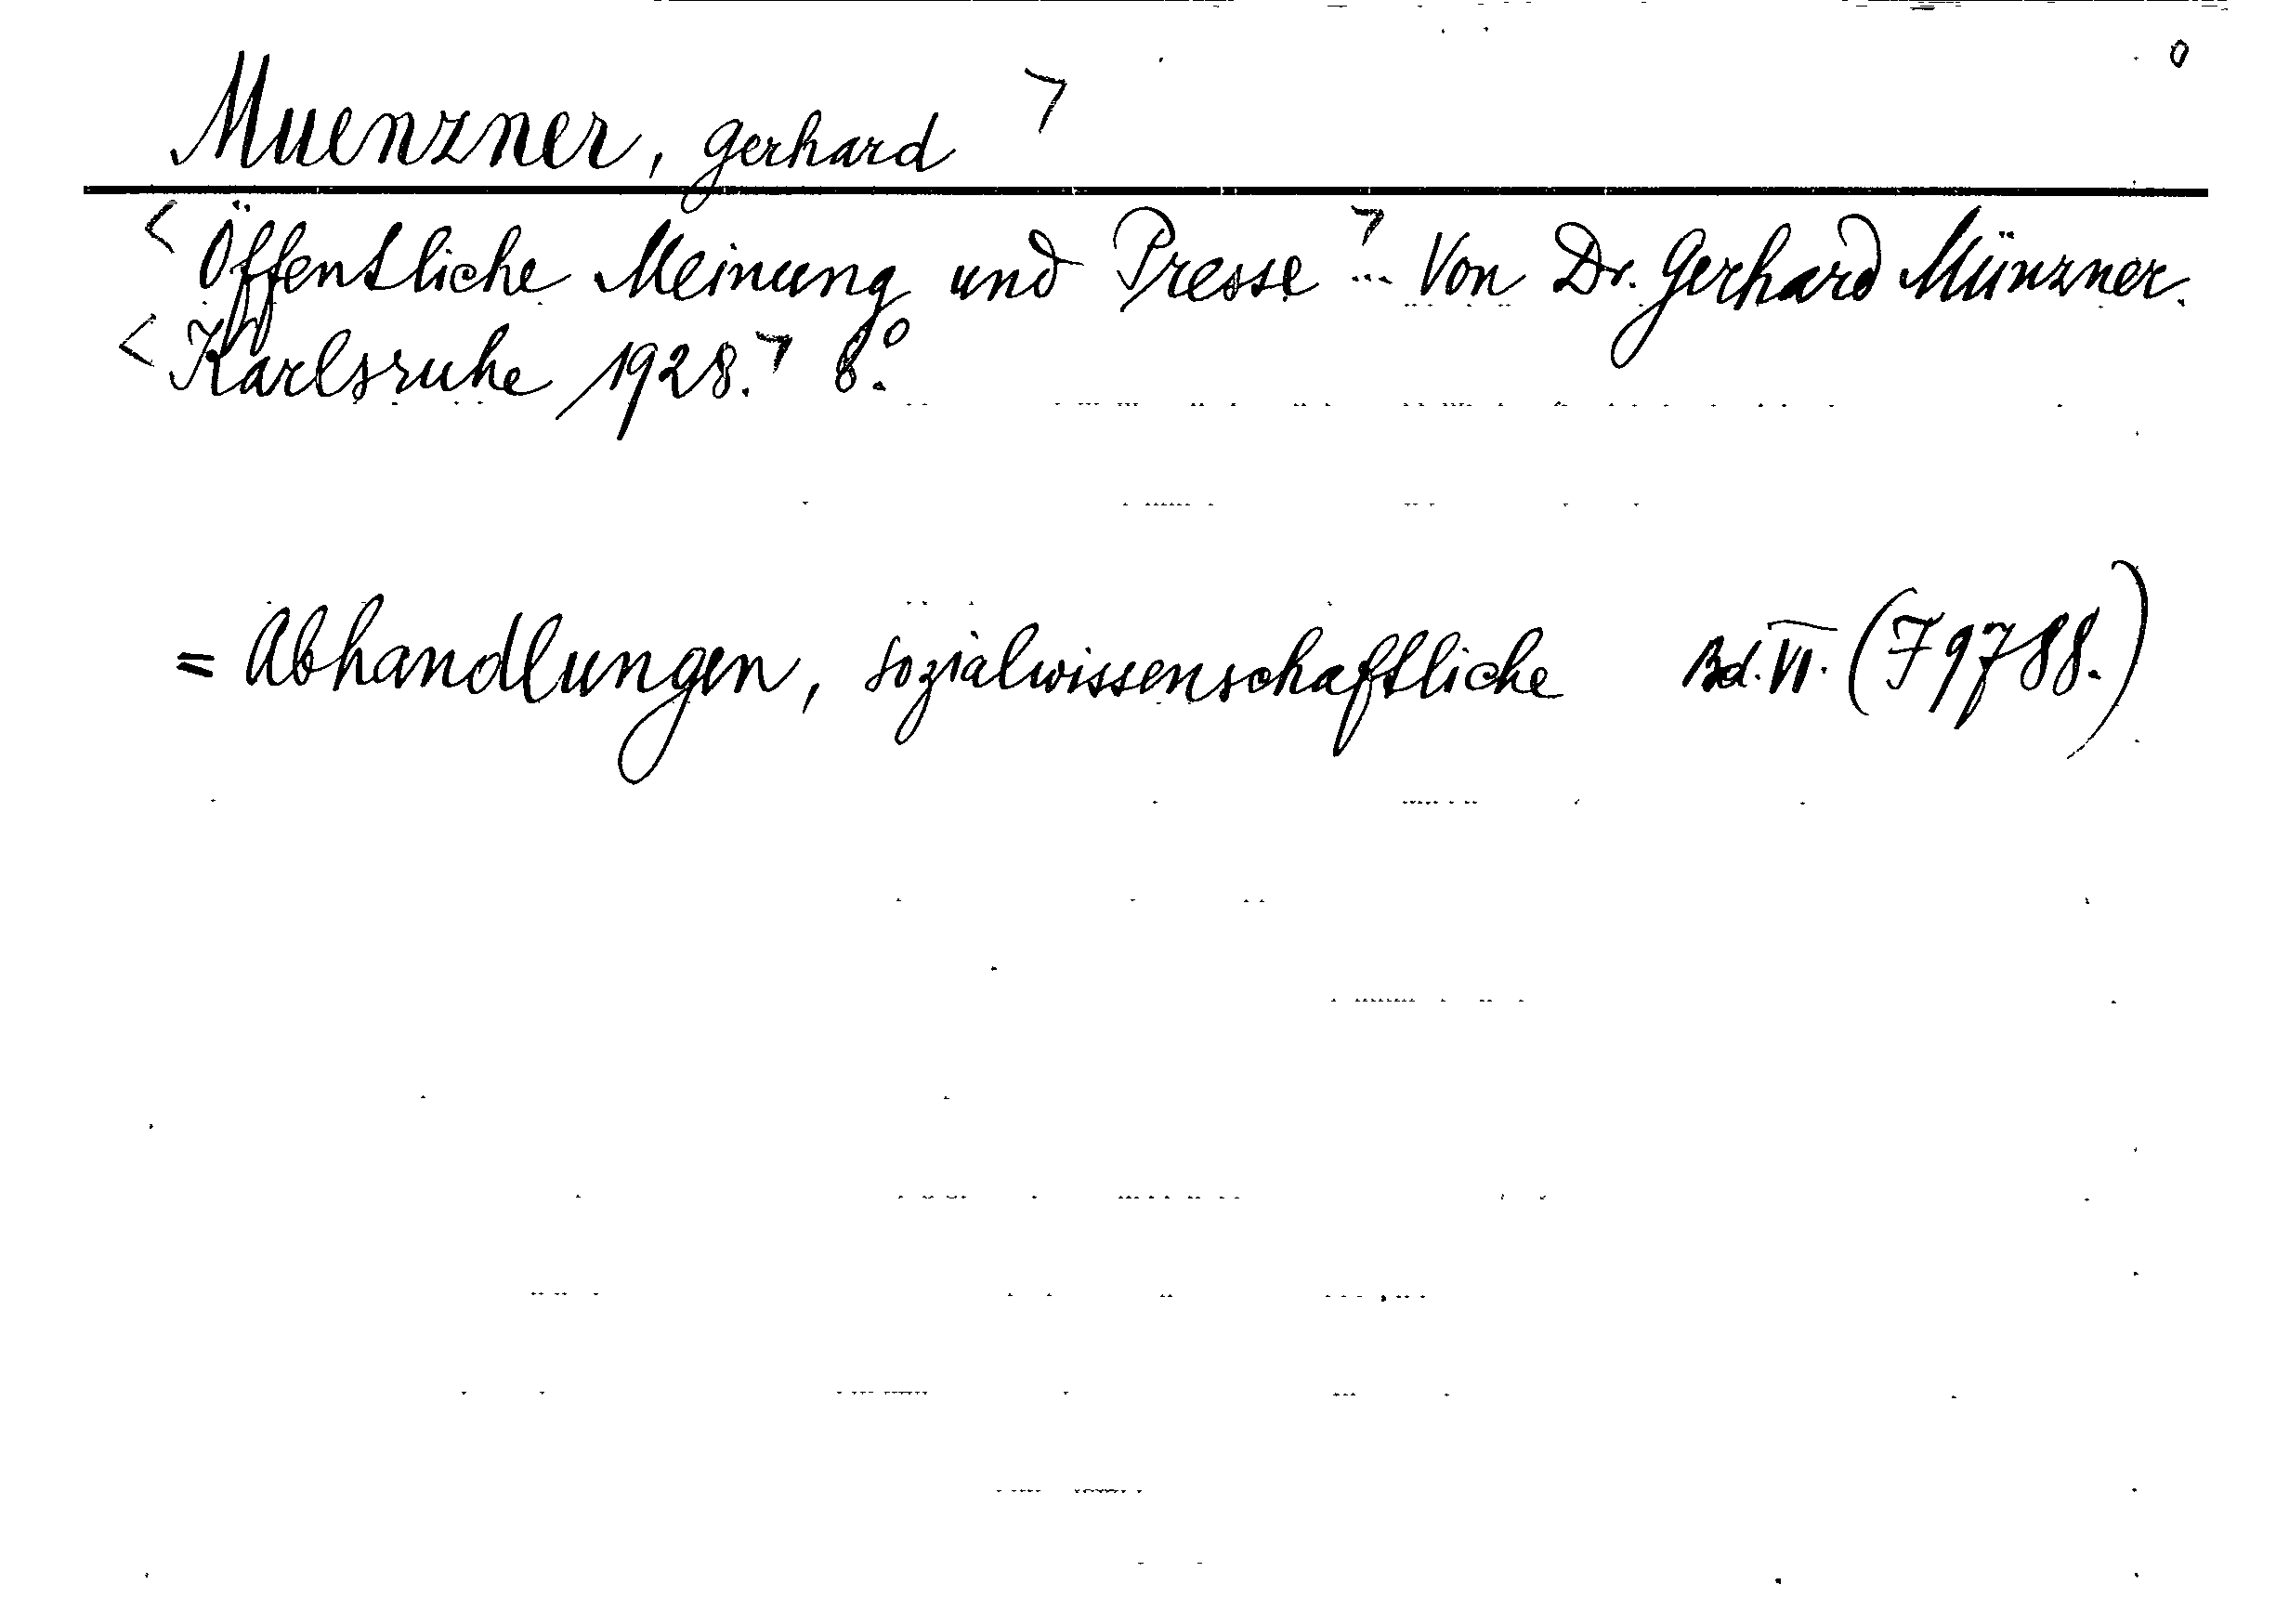 Muenzner, Gerhard ┐
<Öffentliche Meinung und Presse ┐... Von Dr. Gerhard Münzner.
<Karlsruhe 1928.┐ 8°.
= Abhandlungen, sozialwissenschaftliche Bd. VI. (F9788.)